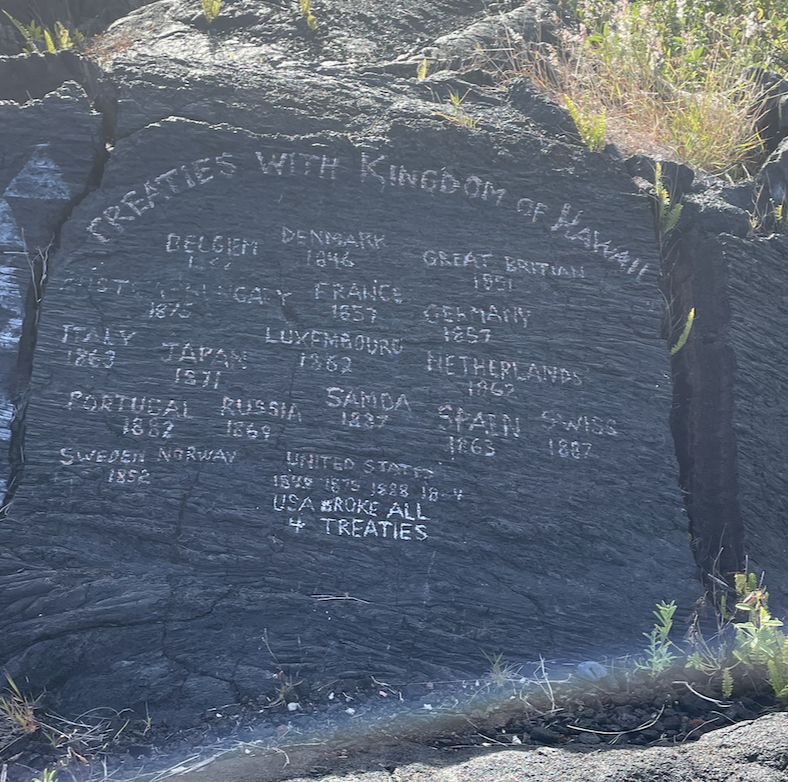 TREATIES WITH KINGDOM OF HAWAII
BELGIEM DENMARK GREAT BRITIAN
1846 1851
FRANCE GERMANY
1875 1857 1857
ITALY JAPAN LUXEMBOURG NETHERLANDS
1863 1871 1862 1862
PORTUGAL RUSSIA SAMOA SPAIN SWISS
1882 1869 1887 1863 1887
SWEDEN NORWAY UNITED STATES
1852 1875
USA BROKE ALL
4 TREATIES